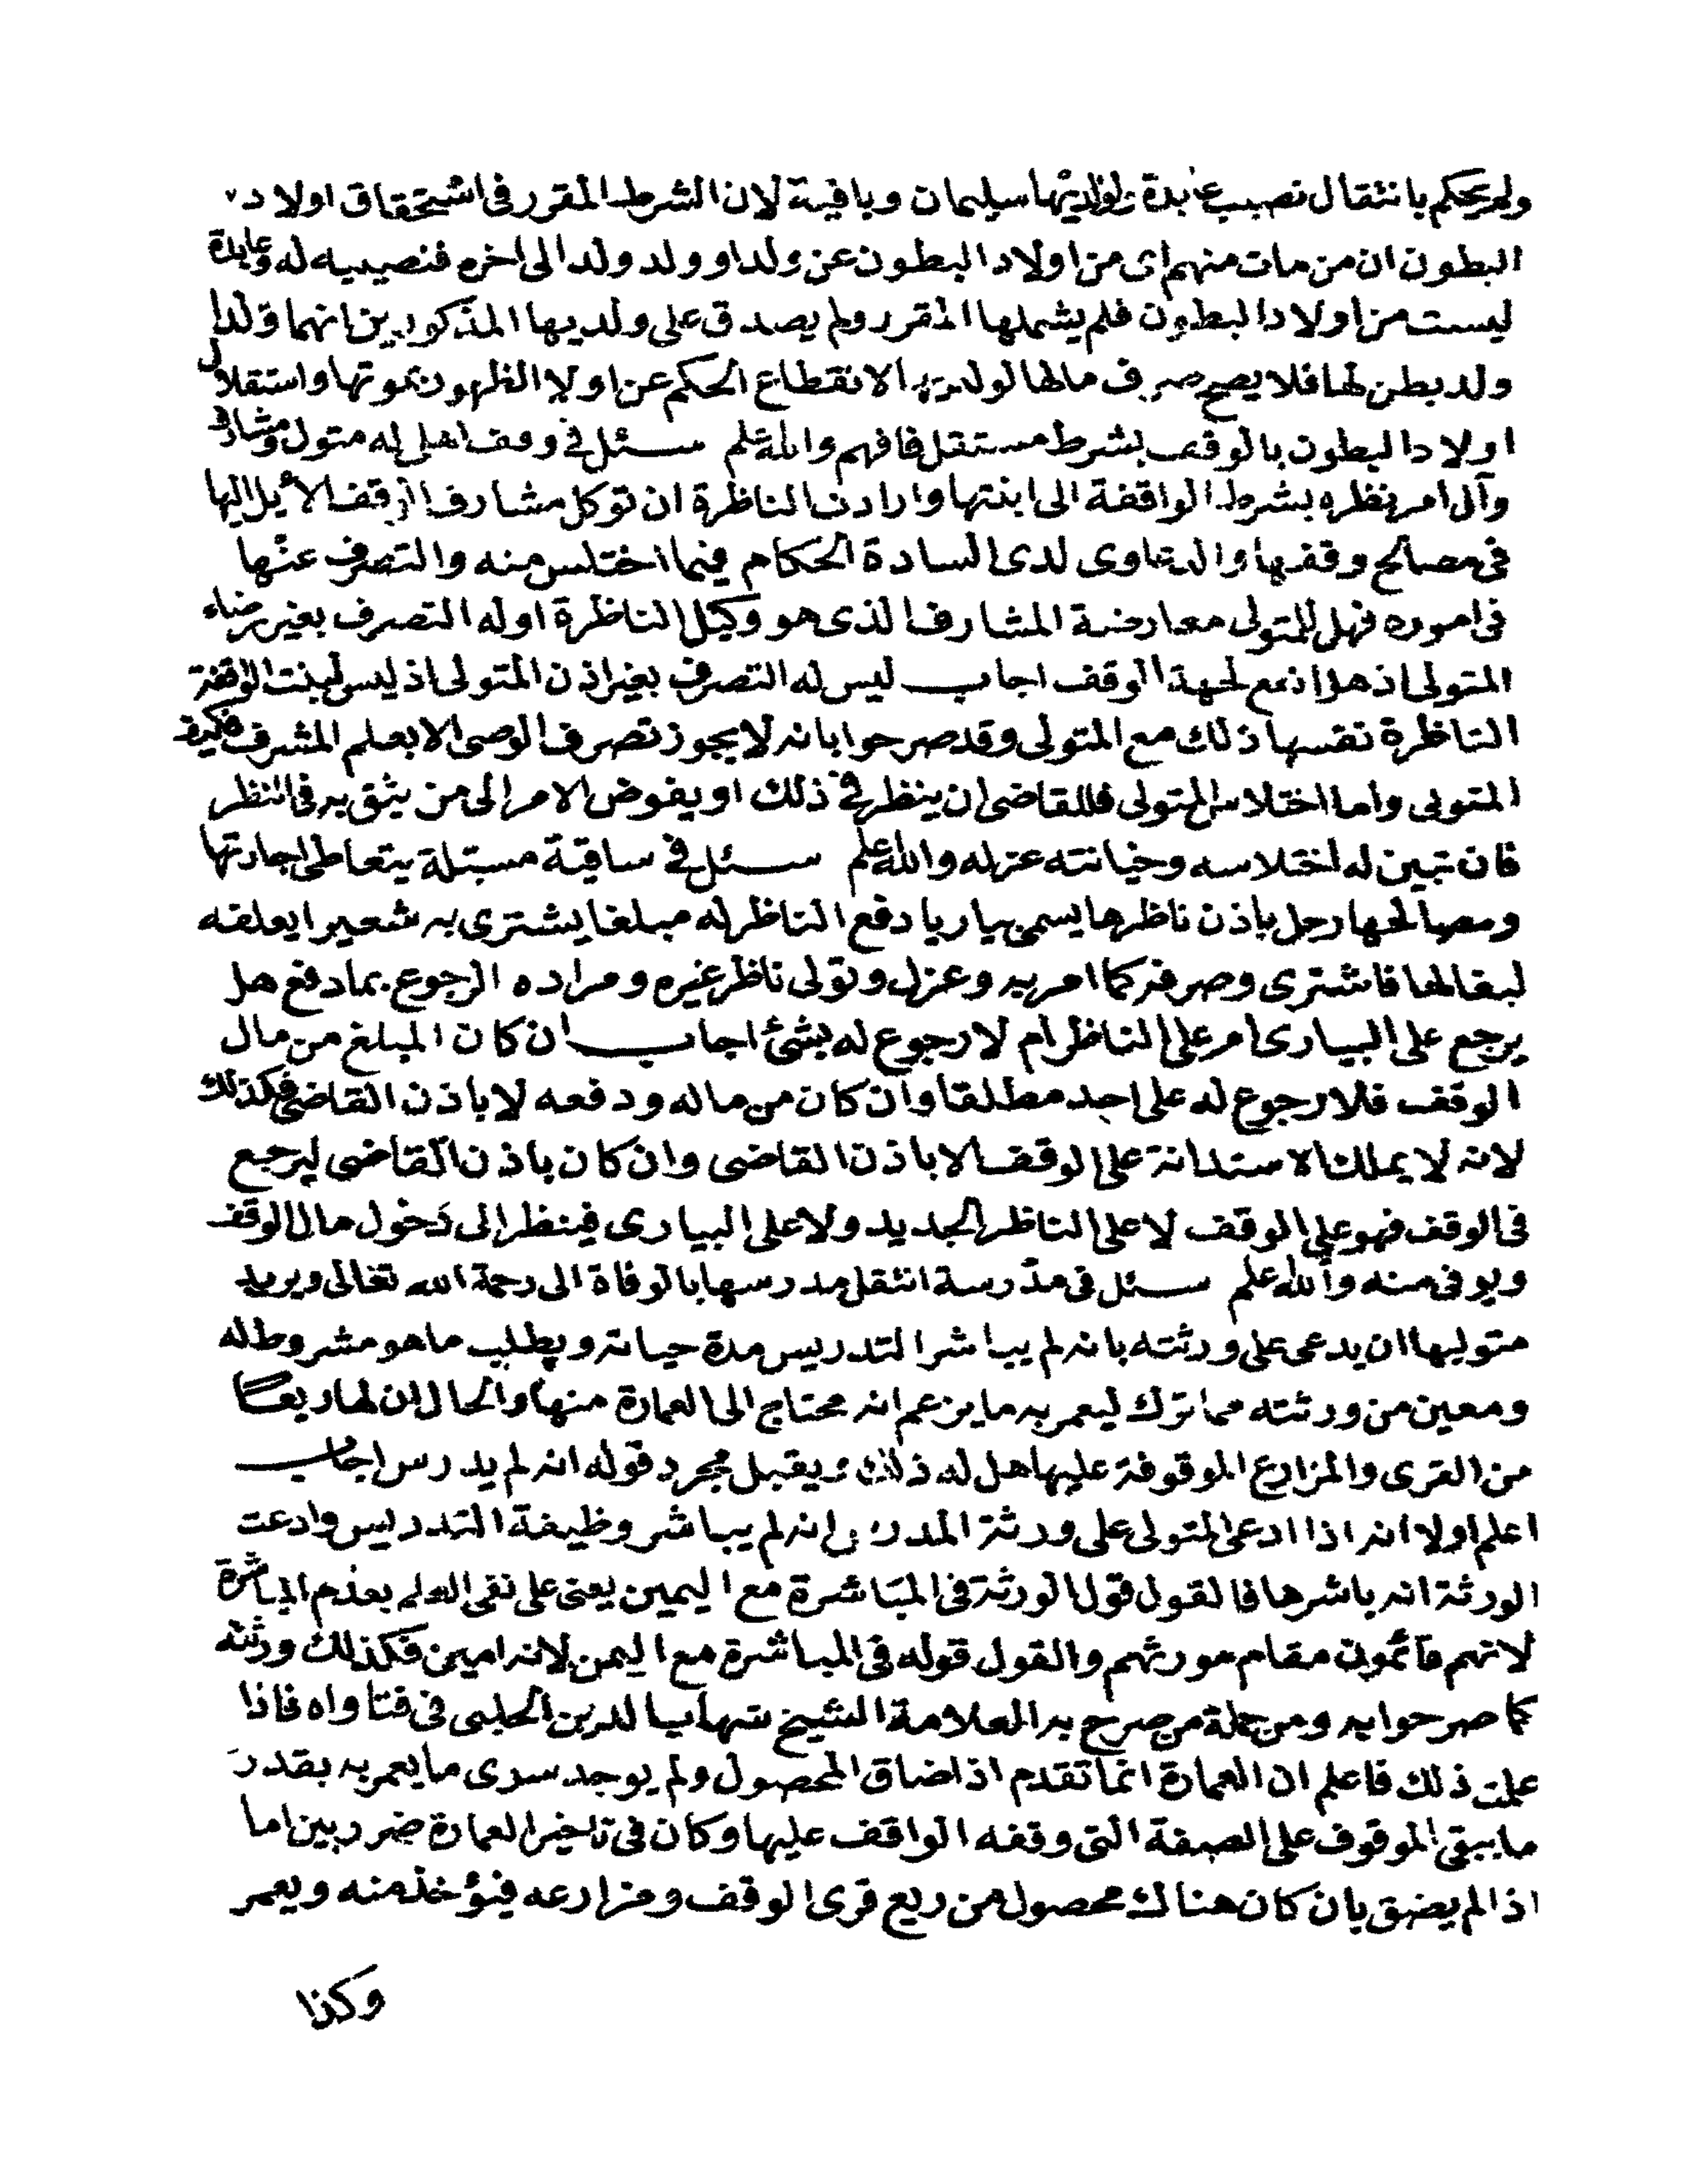 ولم يحكم بانتقال نصيب عابدة لولديها سليمان وباقية لان الشرط المقرر فى استحقاق اولاد
البطون ان من مات منهم اى من اولاد البطون عن ولد او ولد ولد الى اخره فنصيبه له وعابدة
ليست من اولاد البطون فلم يشملها المقرر ولم يصدق على ولديها المذكورين انهما ولدا
ولد بطن لها فلا يصح صرف مالها لولديه الانقطاع الحكم عن اولاد الظهور بموتها واستقلال
اولاد البطون بالوقف بشرط مستقل فافهم والله اعلم سئل فى وقف اهلى له متول ومشارف
وآل امر نظره بشرط الواقفة الى ابنتها وارادت الناظرة ان توكل مشارف الوقف الآيل اليها
فى مصالح وقفها والدعاوى لدى السادة الحكام فيما اختلس منه والتصرف عنها
فى اموره فهل للمتولى معارضة المشارف الذى هو وكيل الناظرة اوله التصرف بغير رضاء
المتولى اذ هذا انفع لجهة الوقف اجاب ليس له التصرف بغير اذن المتولى اذ ليس لبنت الواقفة
الناظرة نفسها ذلك مع المتولى وقد صرحوا بانه لا يجوز تصرف الوصى الا بعلم المشرف فكيف
المتولى واما اختلاس المتولى فللقاضى ان ينظر فى ذلك او يفوض الامر الى من يثق به فى النظر
فان تبين له اختلاسه وخيانته عزله والله اعلم سئل فى ساقية مسبلة يتعاطى اجارتها
ومصالحها رجل باذن ناظرها يسمى بياريا دفع الناظر له مبلغا يشترى به شعيرا يعلقه
لبغالها فاشترى وصرفه كما امر به وعزل وتولى ناظر غيره ومراده الرجوع بما دفع هل
يرجع على البيارى ام على الناظر ام لا رجوع له بشئ اجاب ان كان المبلغ من مال
الوقف فلا رجوع له على احد مطلقا وان كان من ماله ودفعه لا باذن القاضى فكذلك
لانه لا يملك الاستدانة على الوقف الا باذن القاضى وان كان باذن القاضى ليرجع
فى الوقف فهو على الوقف لا على الناظر الجديد ولا على البيارى فينظر الى دخول مال الوقف
ويوفى منه والله اعلم سئل فى مدرسة انتقل مدرسها بالوفاة الى رحمة الله تعالى ويريد
متوليها ان يدعى على ورثته بانه لم يباشر التدريس مدة حياته ويطلب ما هو مشروط له
ومعين من ورثته مما ترك ليعمر به ما يزعم انه محتاج الى العمارة منها والحال ان لها ريعا
من القرى والمزارع الموقوفة عليها هل له ذلك ويقبل مجرد قوله انه لم يدرس اجاب
اعلم اولا انه اذا ادعى المتولى على ورثة المدرس انه لم يباشر وظيفة التدريس وادعت
الورثة انه باشرها فالقول قول الورثة فى المباشرة مع اليمين يعنى على نفى العلم بعدم المباشرة
لانهم قائمون مقام مورثهم والقول قوله فى المباشرة مع اليمن لانه امين فكذلك ورثته
كما صرحوا به ومن جملة من صرح به العلامة الشيخ شهاب الدين الحلبى فى فتاواه فاذا
علمت ذلك فاعلم ان العمارة انما تقدم اذا ضاق المحصول ولم يوجد سوى ما يعمر به بقدر
ما يبقى الموقوف على الصفة التى وقفه الواقف عليها وكان فى تاخير العمارة ضرر بين اما
اذا لم يضق بان كان هناك محصول من ريع قرى الوقف ومزارعه فيؤخذ منه ويعمر
وكذا